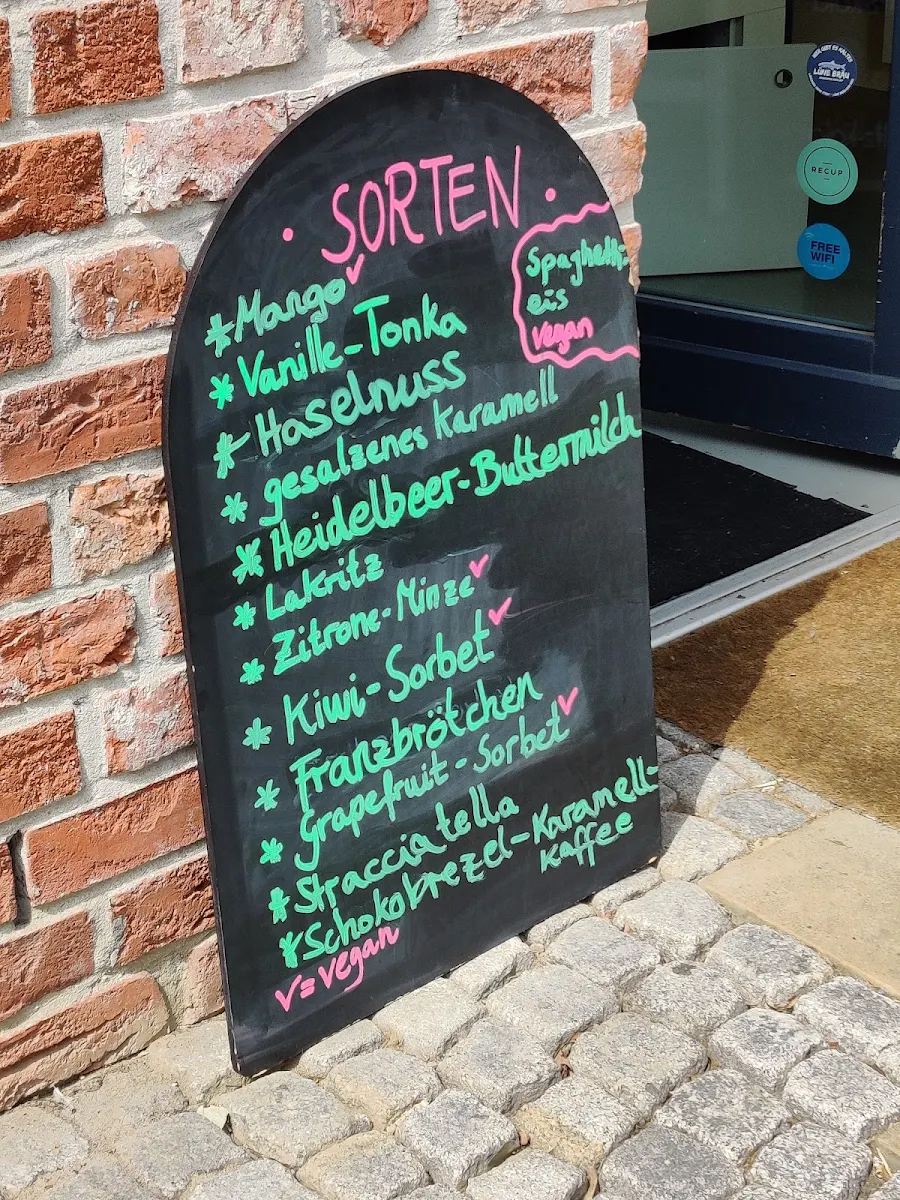 • SORTEN •
* Mango v
* Vanille-Tonka
* Haselnuss
* gesalzenes Karamell
* Heidelbeer-Buttermilch
* Lakritz
* Zitrone-Minze v
* Kiwi-Sorbet v
* Franzbrötchen
* Grapefruit-Sorbet v
* Stracciatella
* Schokobrezel-Karamell-
Kaffee
v = vegan
Spaghetti-
eis
vegan
LÜNE BRÄU
RECUP
FREE
WIFI